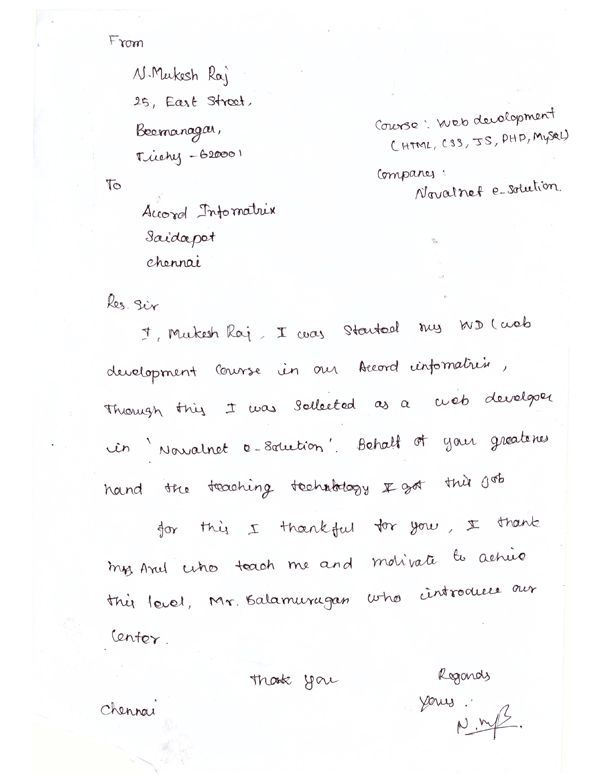 From
N. Mukesh Raj
25, East Street,
Beemanagar,
Trichy - 620001
Course: Web development
(HTML, CSS, JS, PHP, MySQL)
Company:
Novalnet e-solution.
To
Accord Infomatrix
Saidapet
Chennai
Res. Sir
I, Mukesh Raj. I was Started my WD (web
development Course in our Accord infomatrix,
Through this I was Sellected as a web developer
in 'Novalnet e-solution'. Behalf of your greatenes
hand the teaching technology I got this Job
for this I thankful for you, I thank
Arul who teach me and motivate to achive
this level, Mr. Balamurugan who introduce our
Center.
Thank you
Regards
Chennai
yours.